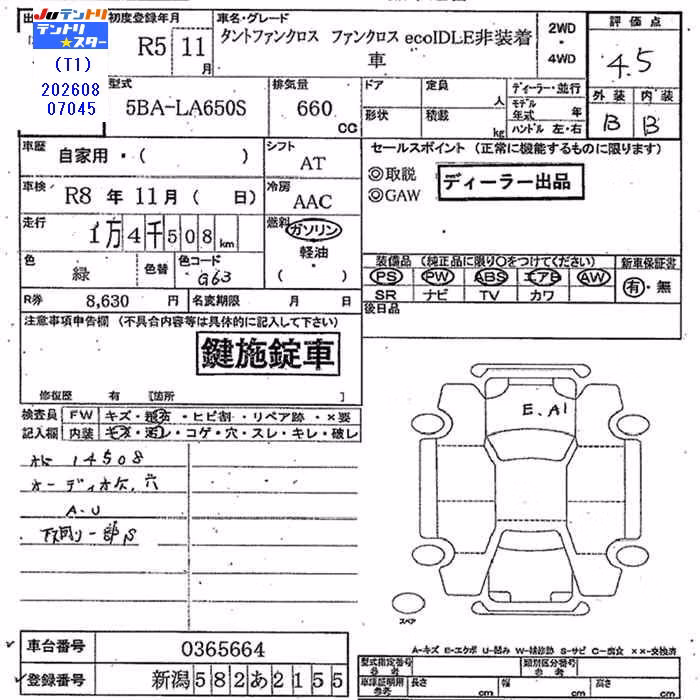 出 初度登録年月 車名・グレード 2WD ・ 4WD 評価点
JU テントリ
テントリ★スター
(T1)
202608
07045
R5 11月 タントファンクロス ファンクロス ecoIDLE非装着車 4.5
型式 排気量 ドア 定員 人 ディーラー・並行 外装 内装
5BA-LA650S 660 CC 形状 積載 kg モデル年式 年 ハンドル 左・右 B B
車歴 自家用・( ) シフト AT
セールスポイント (正常に機能するものに限ります)
◎取説 ディーラー出品
◎GAW
車検 R8年11月( 日) 冷房 AAC
走行 1万4千508km 燃料 ガソリン
軽油
( )
色 緑 色替 色コード G63
装備品 (純正品に限り○をつけてください) 新車保証書
PS PW ABS エアB AW 有・無
SR ナビ TV カワ
R券 8,630円 名変期限 月 日 後日品
注意事項申告欄 (不具合内容等は具体的に記入して下さい)
鍵施錠車
修復歴 有 [箇所 ]
検査員 FW キズ・飛石・ヒビ割・リペア跡・×要
記入欄 内装 キズ・汚レ・コゲ・穴・スレ・キレ・破レ
14508
オーディオレ、穴
A.U
下回り一部S
E.A1
スペア
A-キズ E-エクボ U-凹み W-補修跡 S-サビ C-腐食 ××-交換済
車台番号 0365664
登録番号 新潟582あ2155
型式指定番号 参考 類別区分番号 参考
車庫証明用 参考 長さ cm 幅 cm 高さ cm